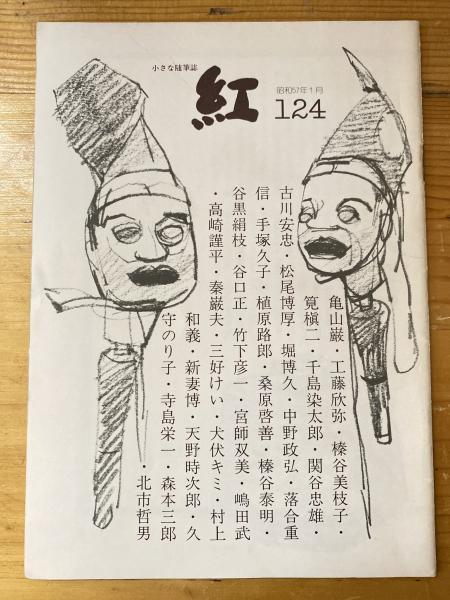 小さな随筆誌
紅
昭和57年1月
124
亀山巌・工藤欣弥・榛谷美枝子・
筧槇二・千島染太郎・関谷忠雄・
古川安忠・松尾博厚・堀博久・中野政弘・落合重
信・手塚久子・植原路郎・桑原啓善・榛谷泰明・
谷黒絹枝・谷口正・竹下彦一・宮師双美・嶋田武
・高崎謹平・秦巌夫・三好けい・犬伏キミ・村上
和義・新妻博・天野時次郎・久
守のり子・寺島栄一・森本三郎
・北市哲男